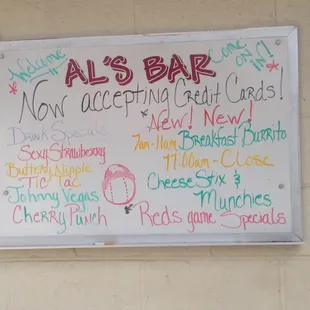 Welcome
AL'S BAR
COME ON IN!
Now accepting Credit Cards!
Drink Specials
Sexy Strawberry
Buttery Nipple
Tic Tac
Johnny Vegas
Cherry Punch
New! New!
7am-11am Breakfast Burrito
11:00am - Close
Cheese Stix &
Munchies
Reds game Specials